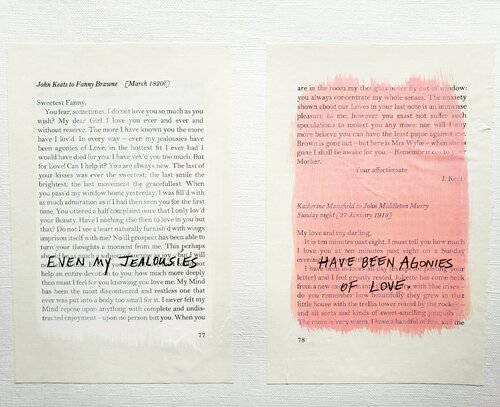 John Keats to Fanny Brawne [March 1820?]
Sweetest Fanny,
You fear, sometimes, I do not love you so much as you
wish? My dear Girl I love you ever and ever and
without reserve. The more I have known you the more
have I lov'd. In every way – even my jealousies have
been agonies of Love, in the hottest fit I ever had I
would have died for you. I have vex'd you too much. But
for Love! Can I help it? You are always new. The last of
your kisses was ever the sweetest; the last smile the
brightest; the last movement the gracefullest. When
you pass'd my window home yesterday, I was fill'd with
as much admiration as if I had then seen you for the first
time. You uttered a half complaint once that I only lov'd
your Beauty. Have I nothing else then to love in you but
that? Do not I see a heart naturally furnish'd with wings
imprison itself with me? No ill prospect has been able to
turn your thoughts a moment from me. This perhaps
EVEN MY JEALOUSIES
help an entire devotion to you: how much more deeply
then must I feel for you knowing you love me. My Mind
has been the most discontented and restless one that
ever was put into a body too small for it. I never felt my
Mind repose upon anything with complete and undis-
tracted enjoyment – upon no person but you. When you
77
are in the room my thoughts never fly out of window:
you always concentrate my whole senses. The anxiety
shown about our Loves in your last note is an immense
pleasure to me: however you must not suffer such
speculations to molest you any more: nor will I any
more believe you can have the least pique against me.
Brown is gone out – but here is Mrs Wylie – when she is
gone I shall be awake for you. – Remembrances to your
Mother.
Your affectionate
J. Keats
Katherine Mansfield to John Middleton Murry
Sunday night [27 January 1918]
My love and my darling,
It is ten minutes past eight. I must tell you how much
I love you at ten minutes past eight on a Sunday
evening
HAVE BEEN AGONIES
OF LOVE.
do you remember how beautifully they grew in that
little house with the trellis tower round by the rocks
and all sorts and kinds of sweet-smelling jonquils
the room is very warm. I have a handful of fire, and the
78